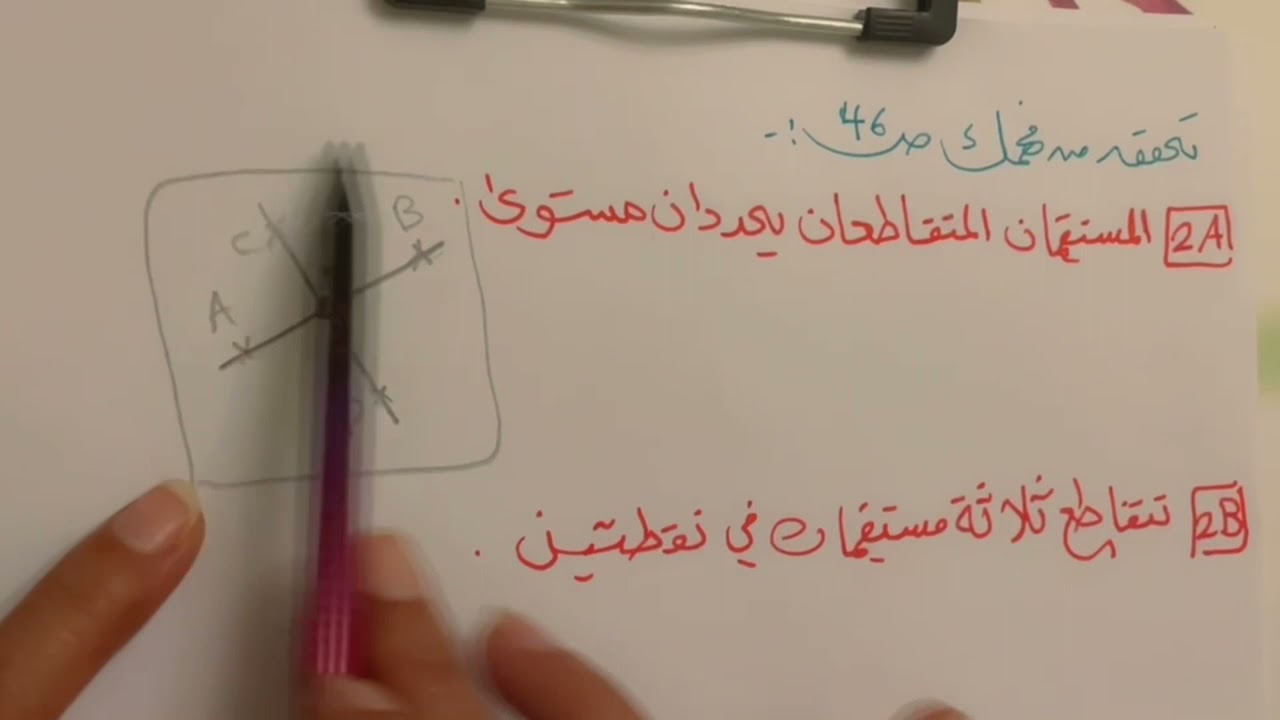 تحققه من فهمك ص 46 :-
2A المستقيمان المتقاطعان يحددان مستوىً .
B
C
A
2B تتقاطع ثلاثة مستقيمات في نقطتين .